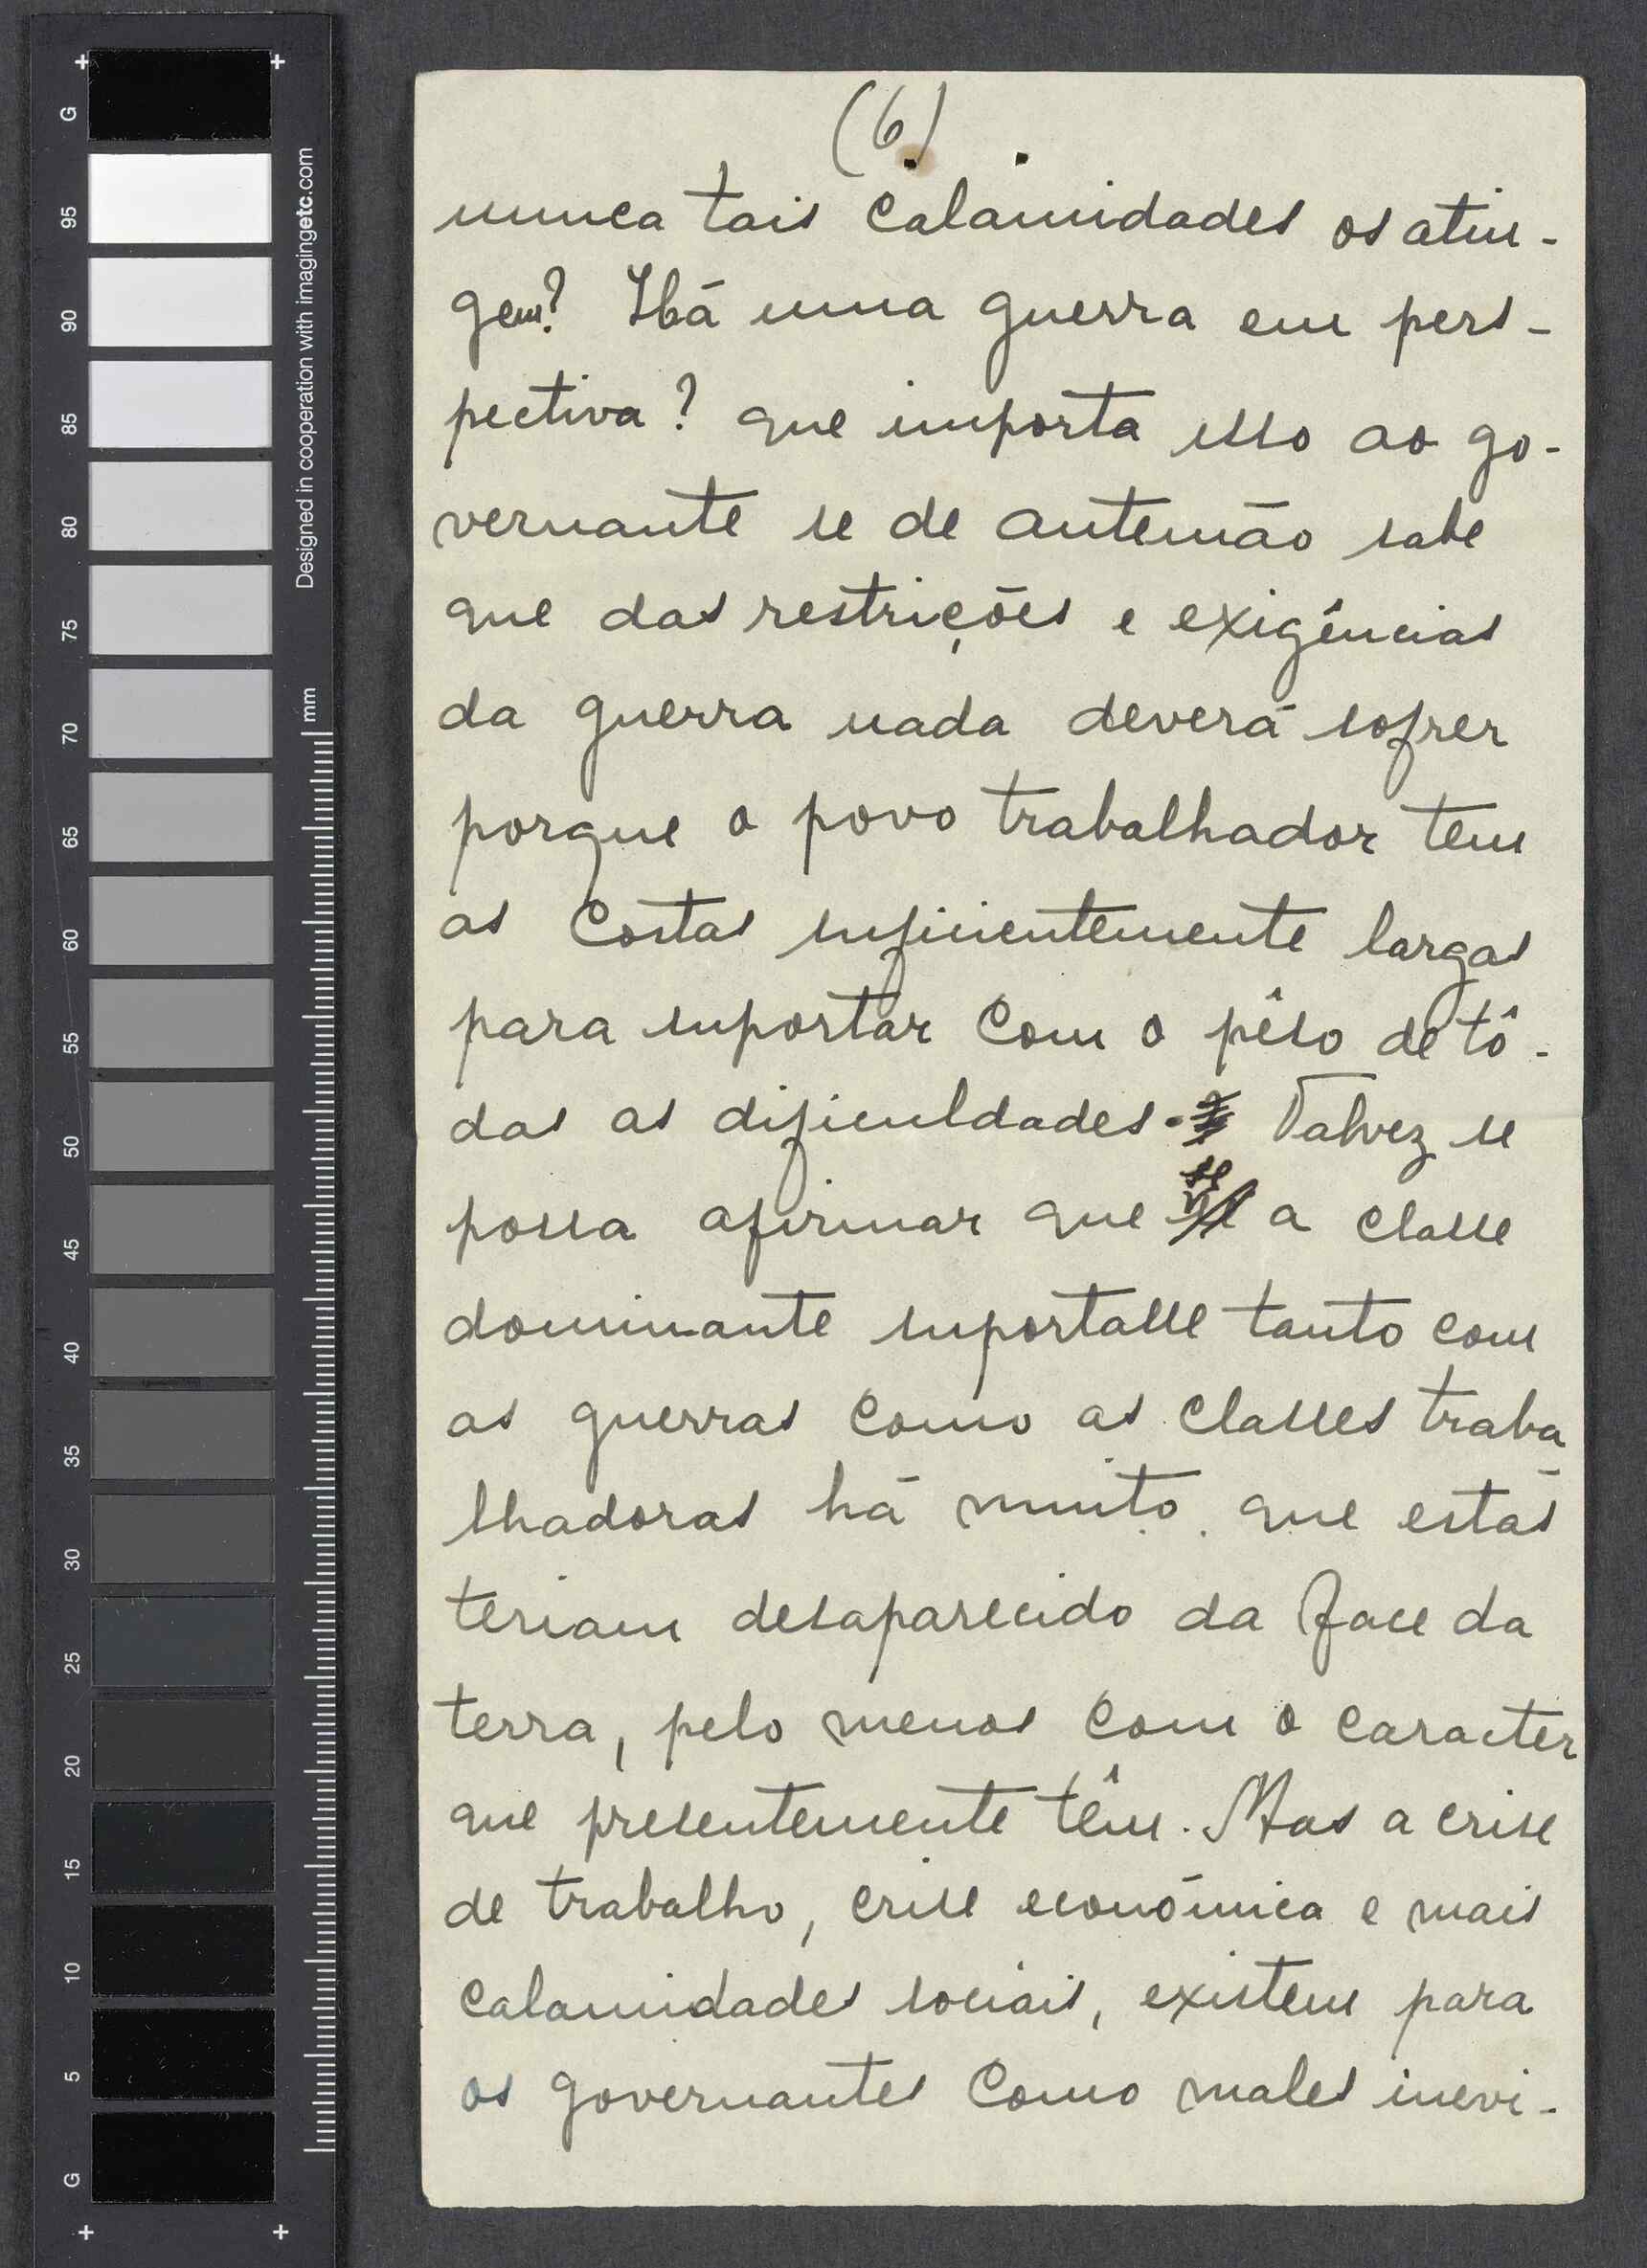 (6)
nunca tais calamidades os atin-
gem? Há uma guerra em pers-
pectiva? que importa isso ao go-
vernante se de antemão sabe
que das restrições e exigências
da guerra nada deverá sofrer
porque o povo trabalhador tem
as costas suficientemente largas
para suportar com o pêso de tô-
das as dificuldades. Talvez se
possa afirmar que se a classe
dominante suportasse tanto com
as guerras como as classes traba
lhadoras há muito que estás
teriam desaparecido da face da
terra, pelo menos com o caracter
que presentemente têm. Mas a crise
de trabalho, crise económica e mais
calamidades sociais, existem para
os governantes como males inevi-
G
95
90
85
80
75
70
65
60
55
50
45
40
35
30
25
20
15
10
5
G
Designed in cooperation with imagingetc.com
mm